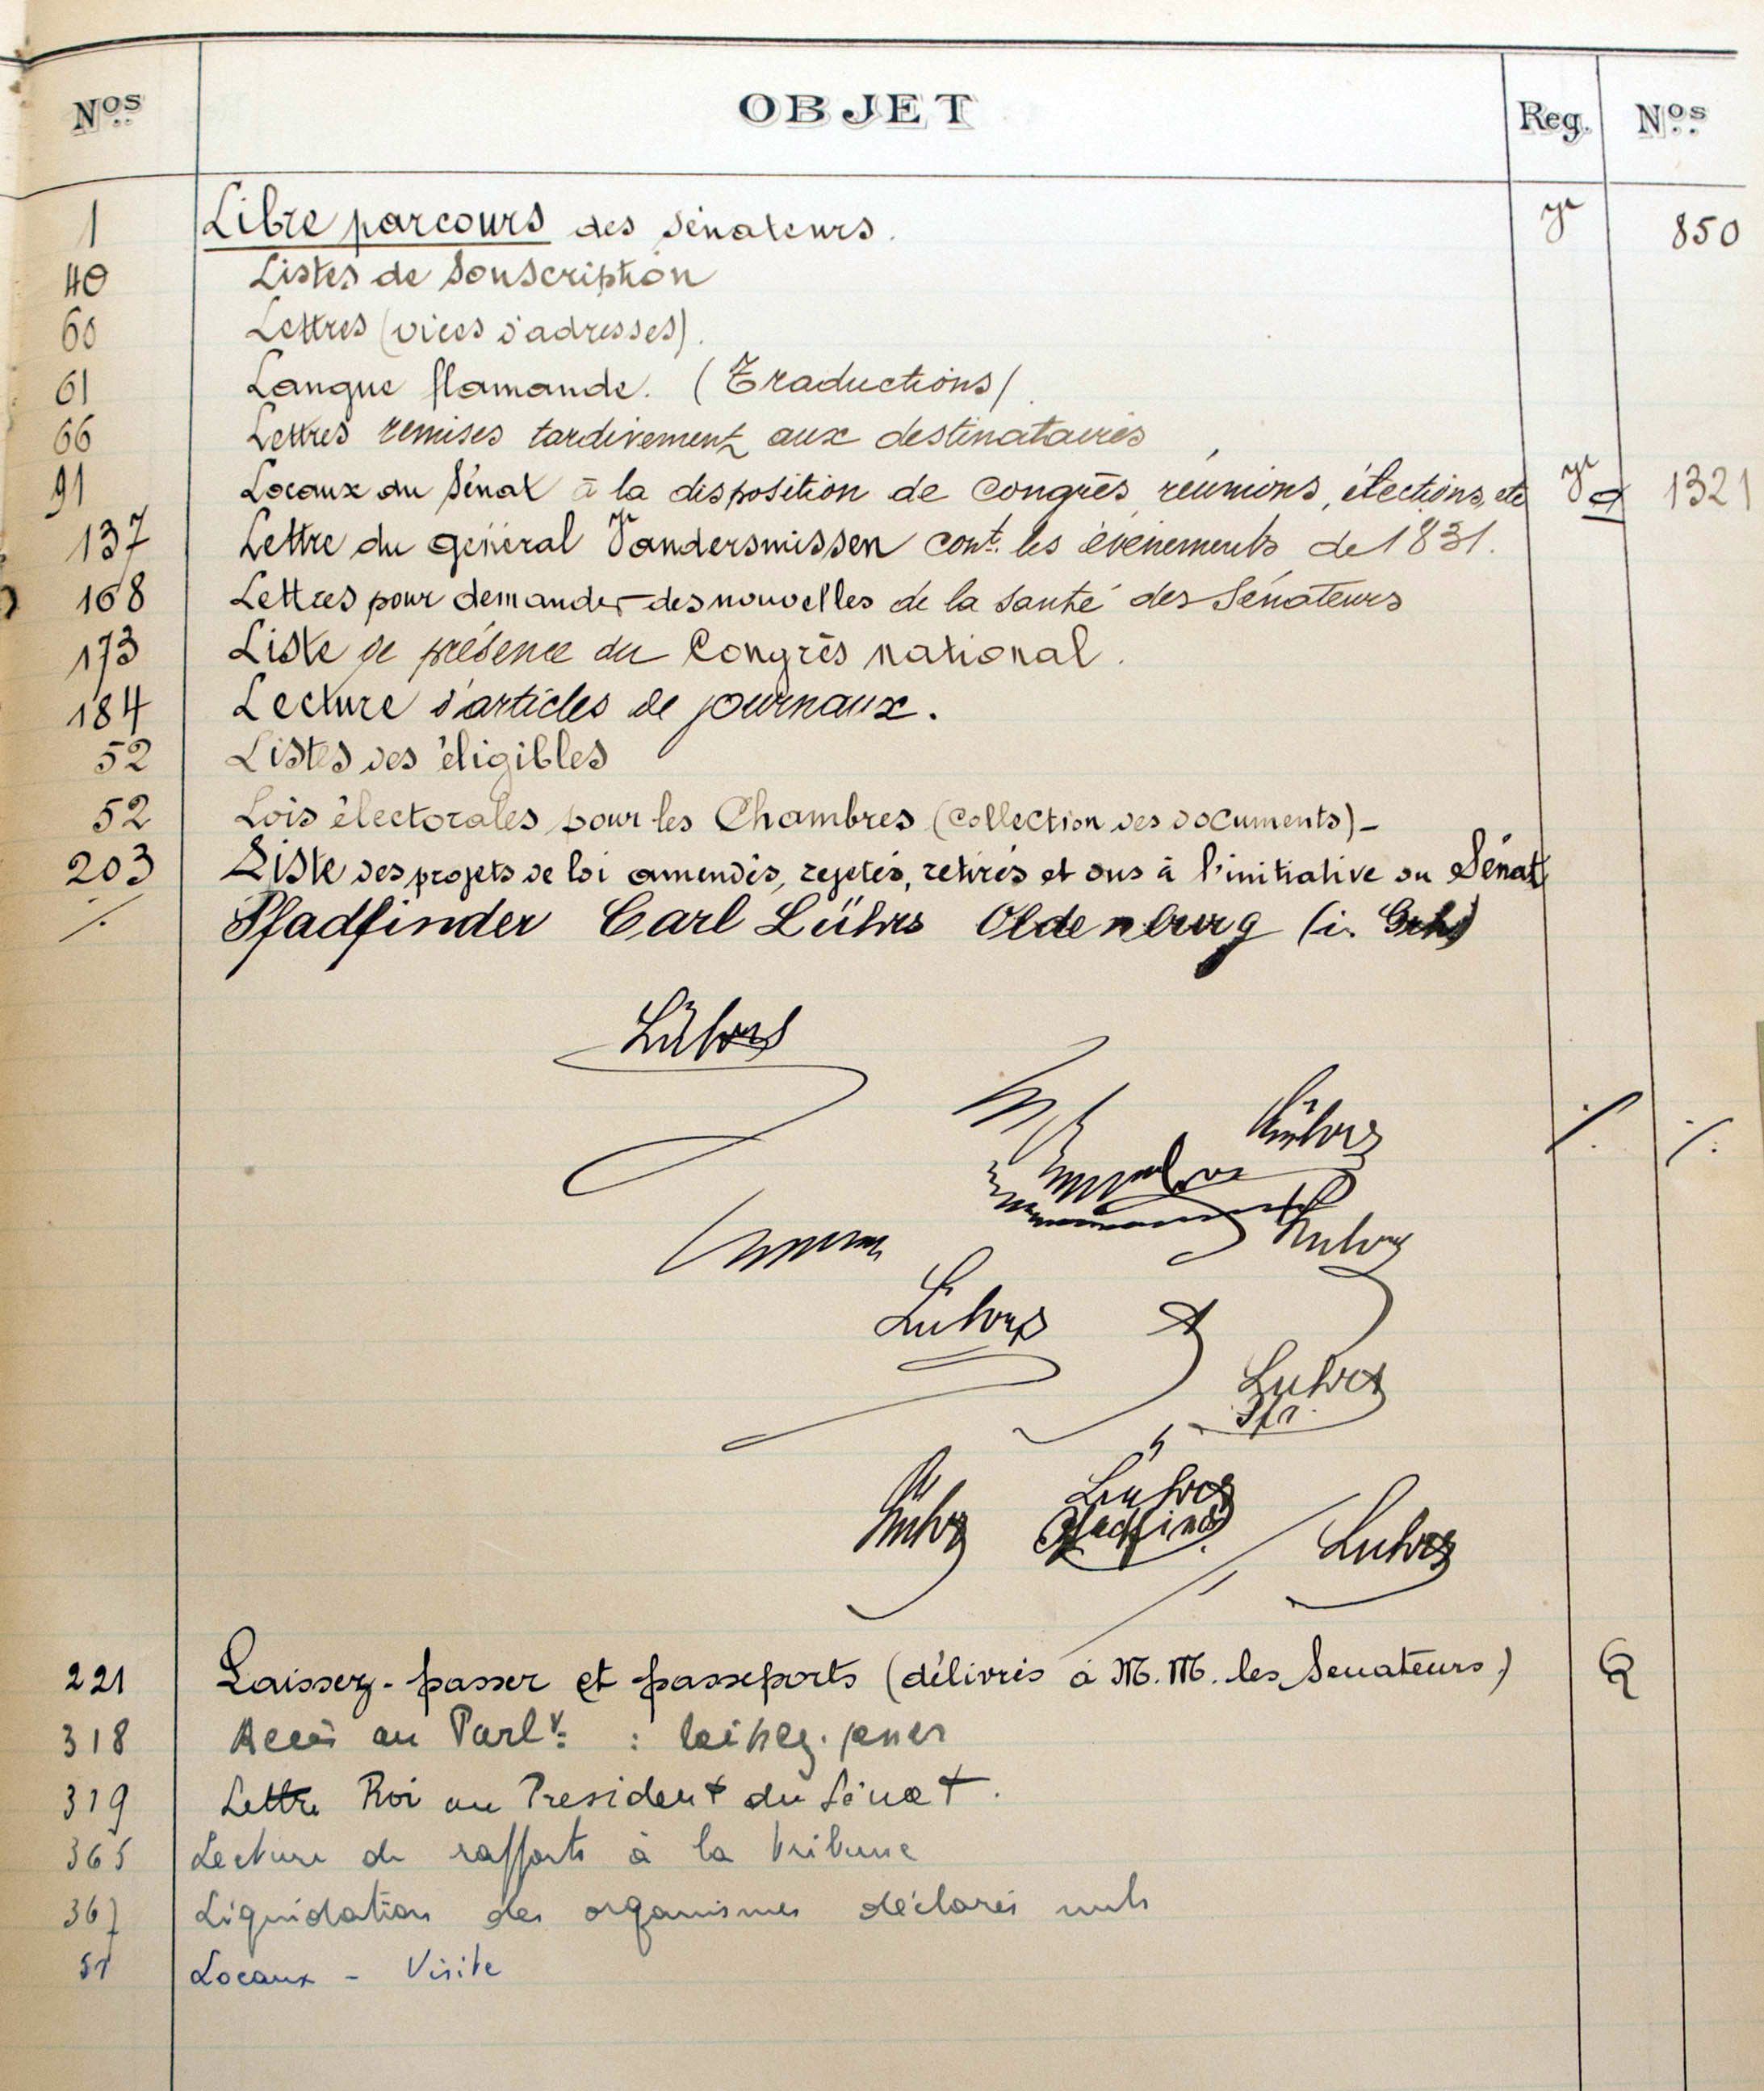 Nos OBJET Reg. Nos
1 Libre parcours des Sénateurs. 850
40 Listes de Souscription
60 Lettres (vices d'adresses).
61 Langue flamande. (Traductions).
66 Lettres remises tardivement aux destinataires
91 Locaux du Sénat à la disposition de Congrès, réunions, élections, etc 1321
137 Lettre du général Vandersmissen cont. les événements de 1831.
168 Lettres pour demander des nouvelles de la santé des Sénateurs
173 Liste de présence du Congrès national.
184 Lecture d'articles de journaux.
52 Listes des éligibles
52 Lois électorales pour les Chambres (collection des documents) -
203 Liste des projets de loi amendés, rejetés, retirés et dus à l'initiative du Sénat
Pfadfinder Carl Lührs Oldenburg (i.
Lührs
Lührs
Lührs
Lührs
Lührs
Lührs
Lührs
Pfadfind
Lührs
221 Laissez-passer et passeports (délivrés à M.M. les Sénateurs)
318 Accès au Parlt : laissez-passer
319 Lettre Roi au President du Sénat.
365 Lecture de rapports à la tribune
367 Liquidation des organismes déclarés nuls
51 Locaux - Visite